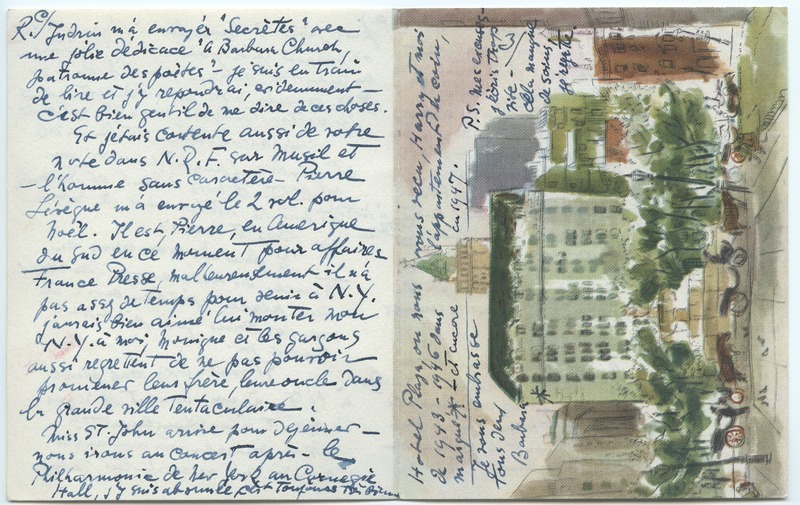 R.S/ Judrin m'a envoyer "Secrètes" avec
une jolie dédicace "à Barbara Church,
patronne des poètes" - je suis en train
de lire et j'y repondrai, evidemment -
c'est bien gentil de me dire de ces choses.
Et j'étais contente aussi de votre
note dans N.R.F. sur Musil et
- l'homme sans caractère - Pierre
m'a envoyé le 2 vol. pour
Noël. Il est, Pierre, en Amerique
du Sud en ce moment pour affaires
France Presse, malheureusement il n'a
pas assz de temps pour venir à N.Y.
j'aurais bien aimé lui montrer mon
N.Y. à moi Monique et les garçons
aussi regrettent de ne pas pouvoir
promener leur frère, leur oncle dans
la grande ville Tentaculaire.
Miss St. John arrive pour déjeuner -
nous irons au concert après - le
Philharmonic de New York au Carnegie
Hall, j'y suis abonnée, c'est toujours très bien
Hotel Plaza, ou nous avons vécu, Harry et moi
de 1943 - 1946 dans l'appartement du coin,
marqué * - et encore en 1947.
Je vous embrasse
tous deux
Barbara
P.S. mes excuses
j'écris trop
vite -
elle manque
de soins,
je regrette.